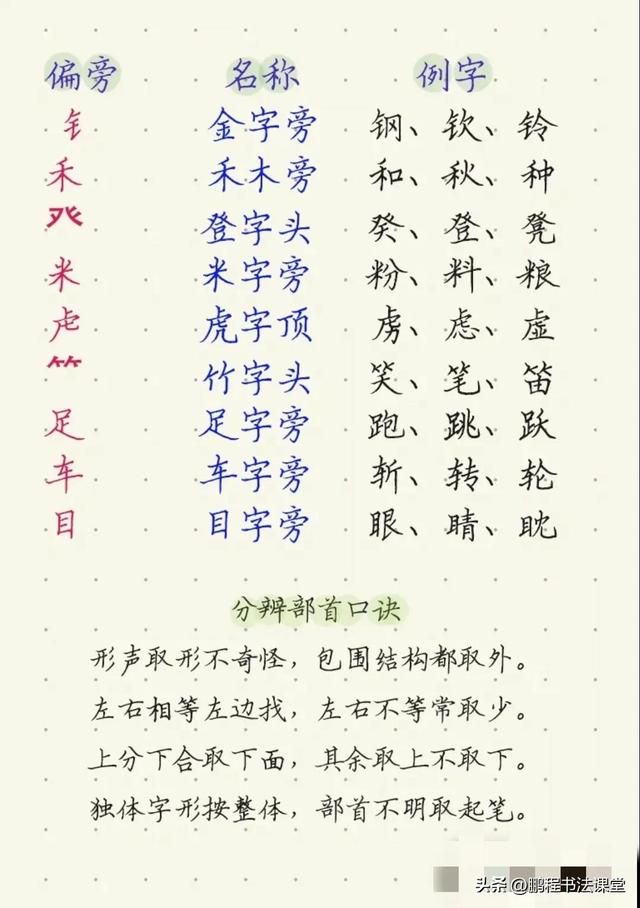 偏旁 名称 例字
钅 金字旁 钢、钦、铃
禾 禾木旁 和、秋、种
癶 登字头 癸、登、凳
米 米字旁 粉、料、粮
虍 虎字顶 虏、虑、虚
⺮ 竹字头 笑、笔、笛
足 足字旁 跑、跳、跃
车 车字旁 斩、转、轮
目 目字旁 眼、睛、眈
分辨部首口诀
形声取形不奇怪，包围结构都取外。
左右相等左边找，左右不等常取少。
上分下合取下面，其余取上不取下。
独体字形按整体，部首不明取起笔。
头条 @鹏程书法课堂